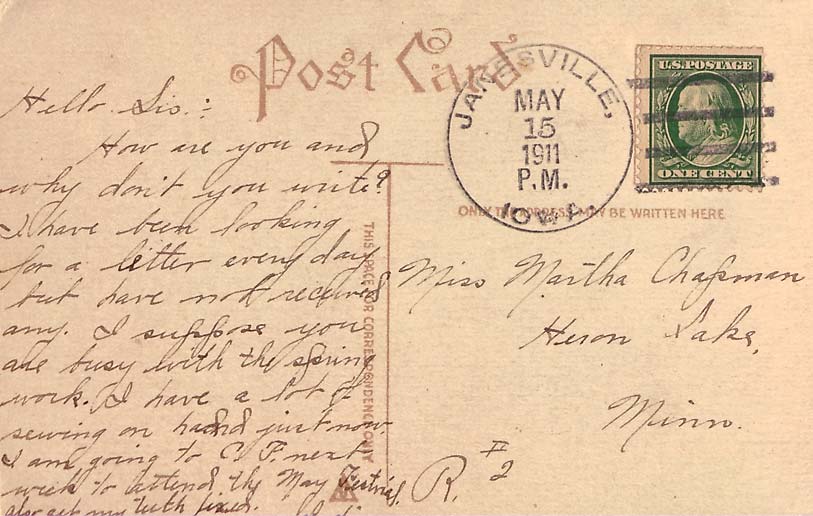 Post Card
JANESVILLE,
MAY
15
1911
P.M.
IOWA.
U.S. POSTAGE
ONE CENT
ONLY THE ADDRESS MAY BE WRITTEN HERE
THIS SPACE FOR CORRESPONDENCE ONLY
Hello Sis.:
How are you and
why don't you write?
I have been looking
for a letter every day
but have not received
any. I suppose you
are busy with the spring
work. I have a lot of
sewing on hand just now.
I am going to C. F. next
week to attend the May Festival,
also get my teeth fixed.
Miss Martha Chapman
Heron Lake,
Minn.
R. # 2